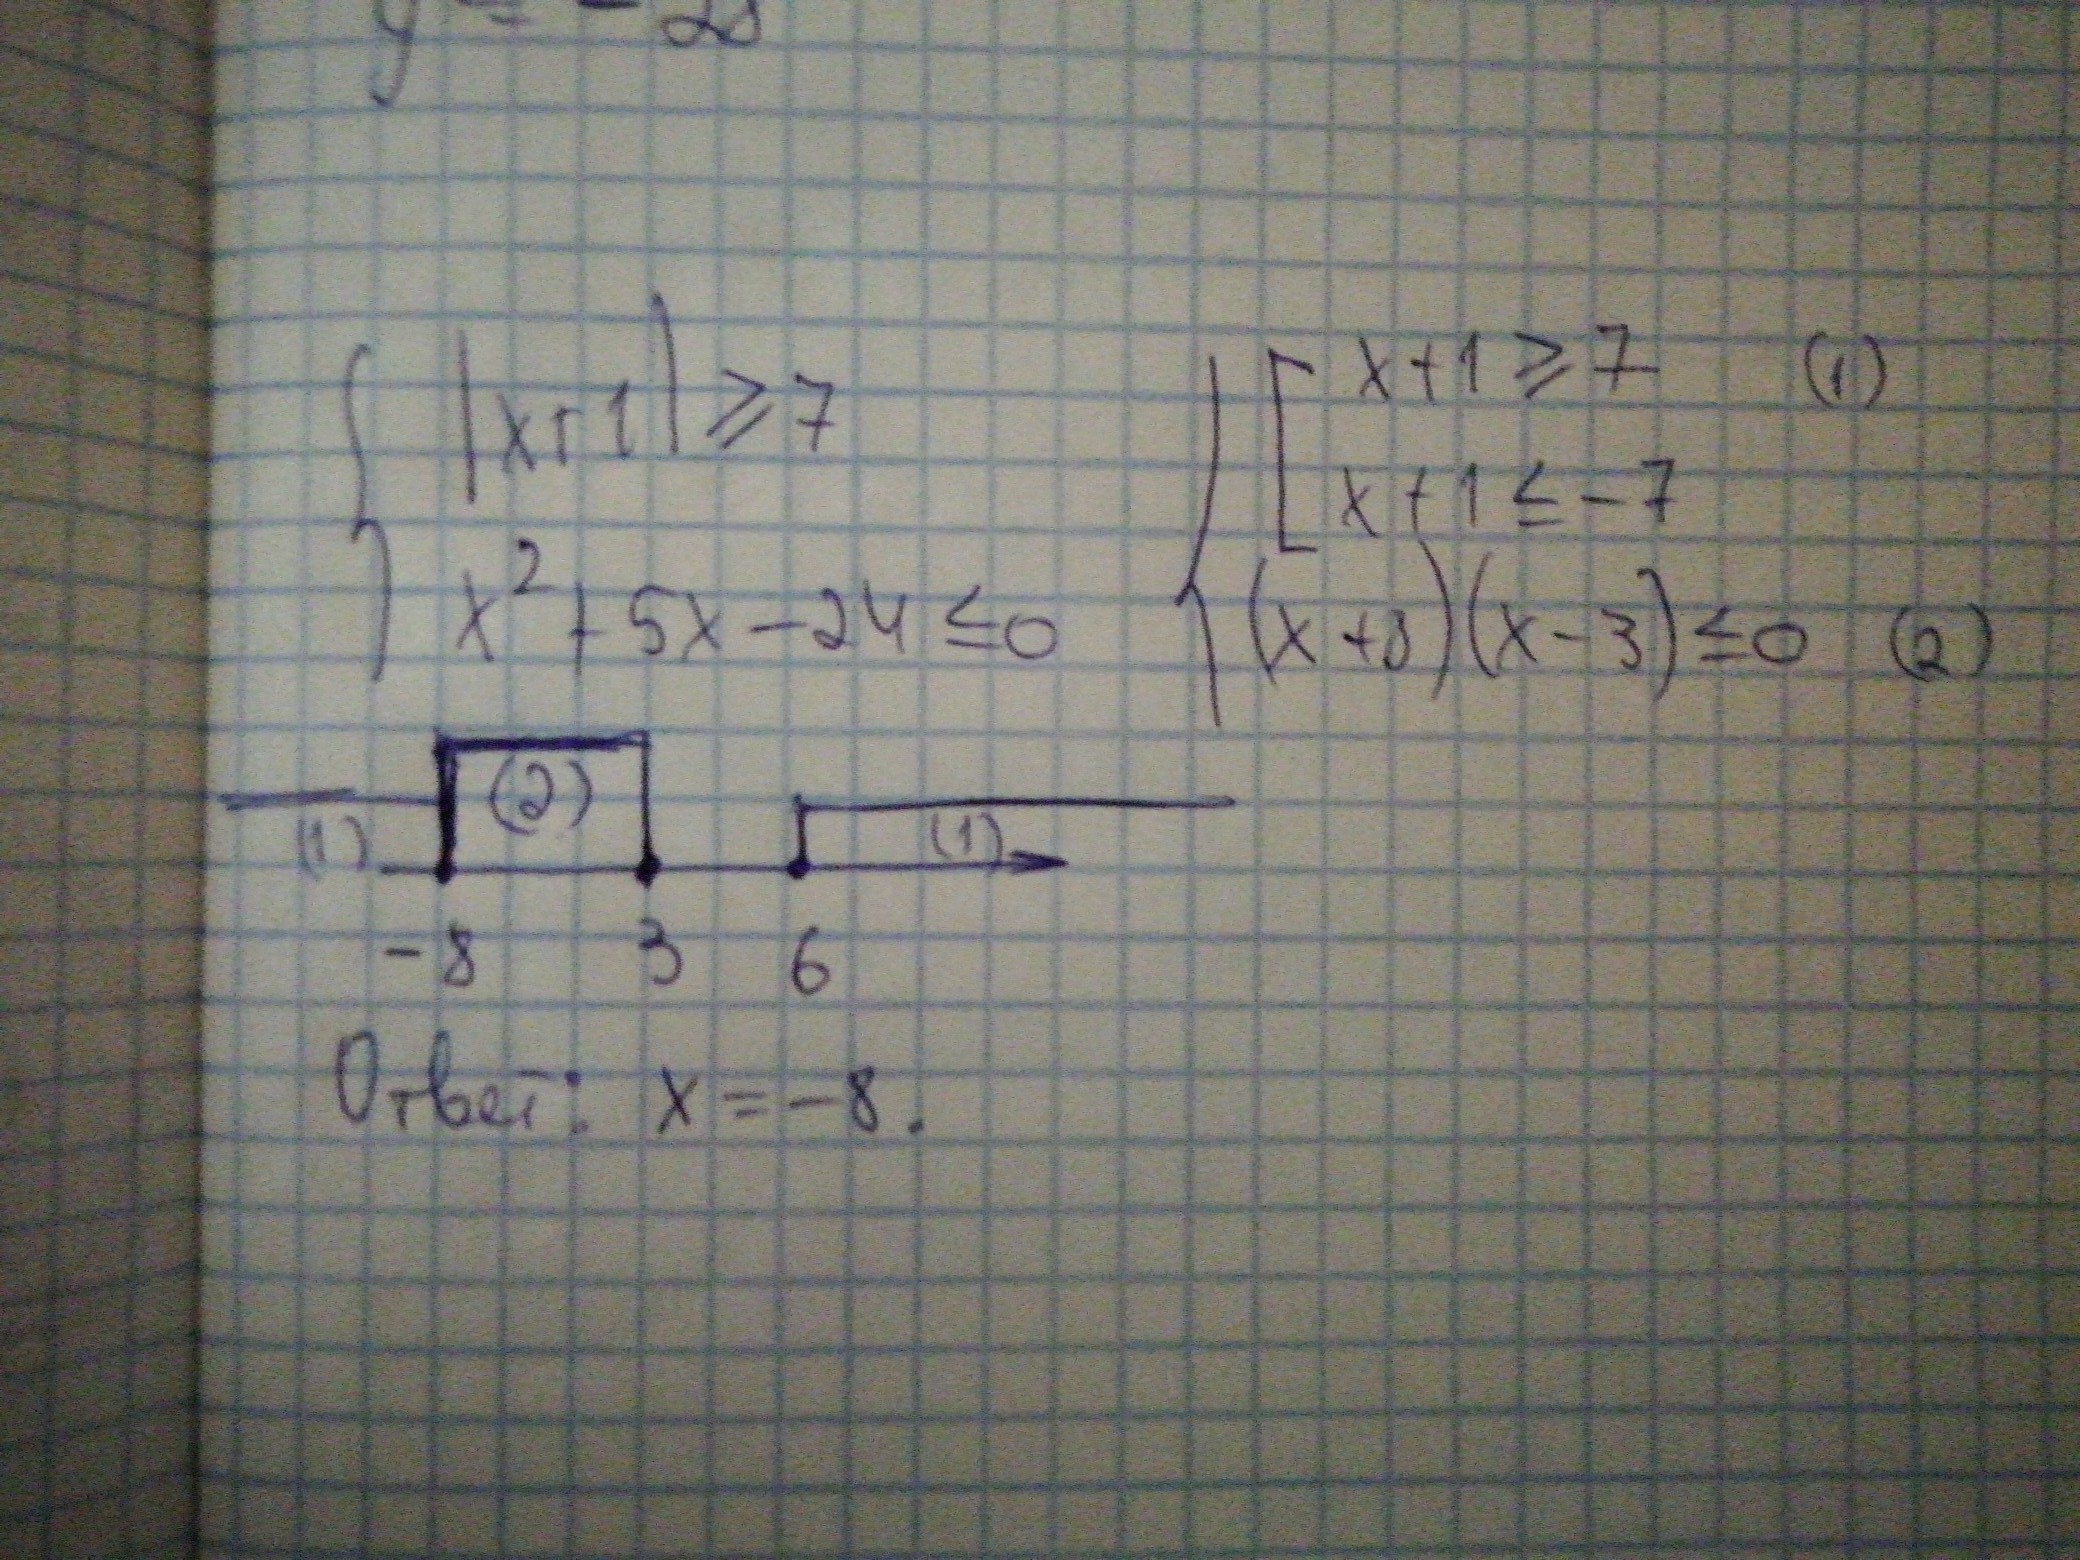 y = - 28
|x+1| ⩾ 7
x² + 5x - 24 ≤ 0
x + 1 ⩾ 7 (1)
x + 1 ≤ -7
(x + 8)(x - 3) ≤ 0 (2)
(1) (2) (1)
-8 3 6
Ответ: x = -8.